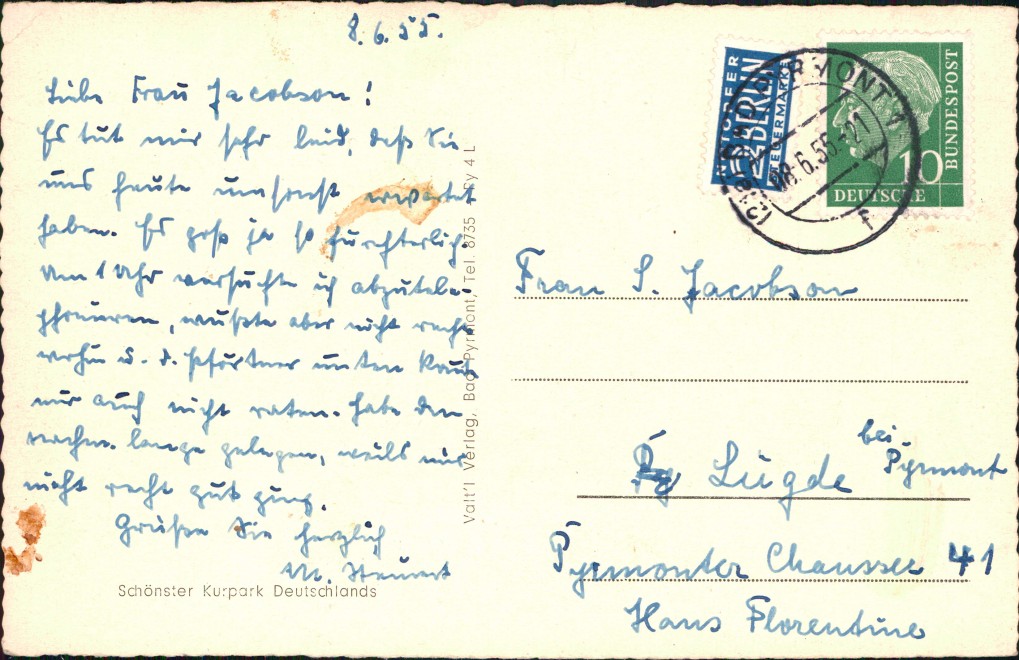 8.6.55.
Liebe Frau Jacobson!
Es tut mir sehr leid, daß Sie
uns heute umsonst erwartet
haben. Es goß ja so fürchterlich.
Um 1 Uhr versuchte ich abzutele-
phonieren, wußte aber nicht recht
wohin u. d. Pförtner unten konnt
mir auch nicht raten. Habe den
nachm. lange gelegen, weils mir
nicht recht gut ging.
Grüßen Sie herzlich
M.
Schönster Kurpark Deutschlands
Valt'l Verlag, Bad Pyrmont, Tel. 8735 Py 4 L
NOTOPFER
2 BERLIN
STEUERMARKE
BAD PYRMONT 1
08.6.55.-21
F
10
DEUTSCHE
BUNDESPOST
Frau S. Jacobson
Lügde bei-
Pyrmont
Pyrmonter Chaussee 41
Haus Florentine